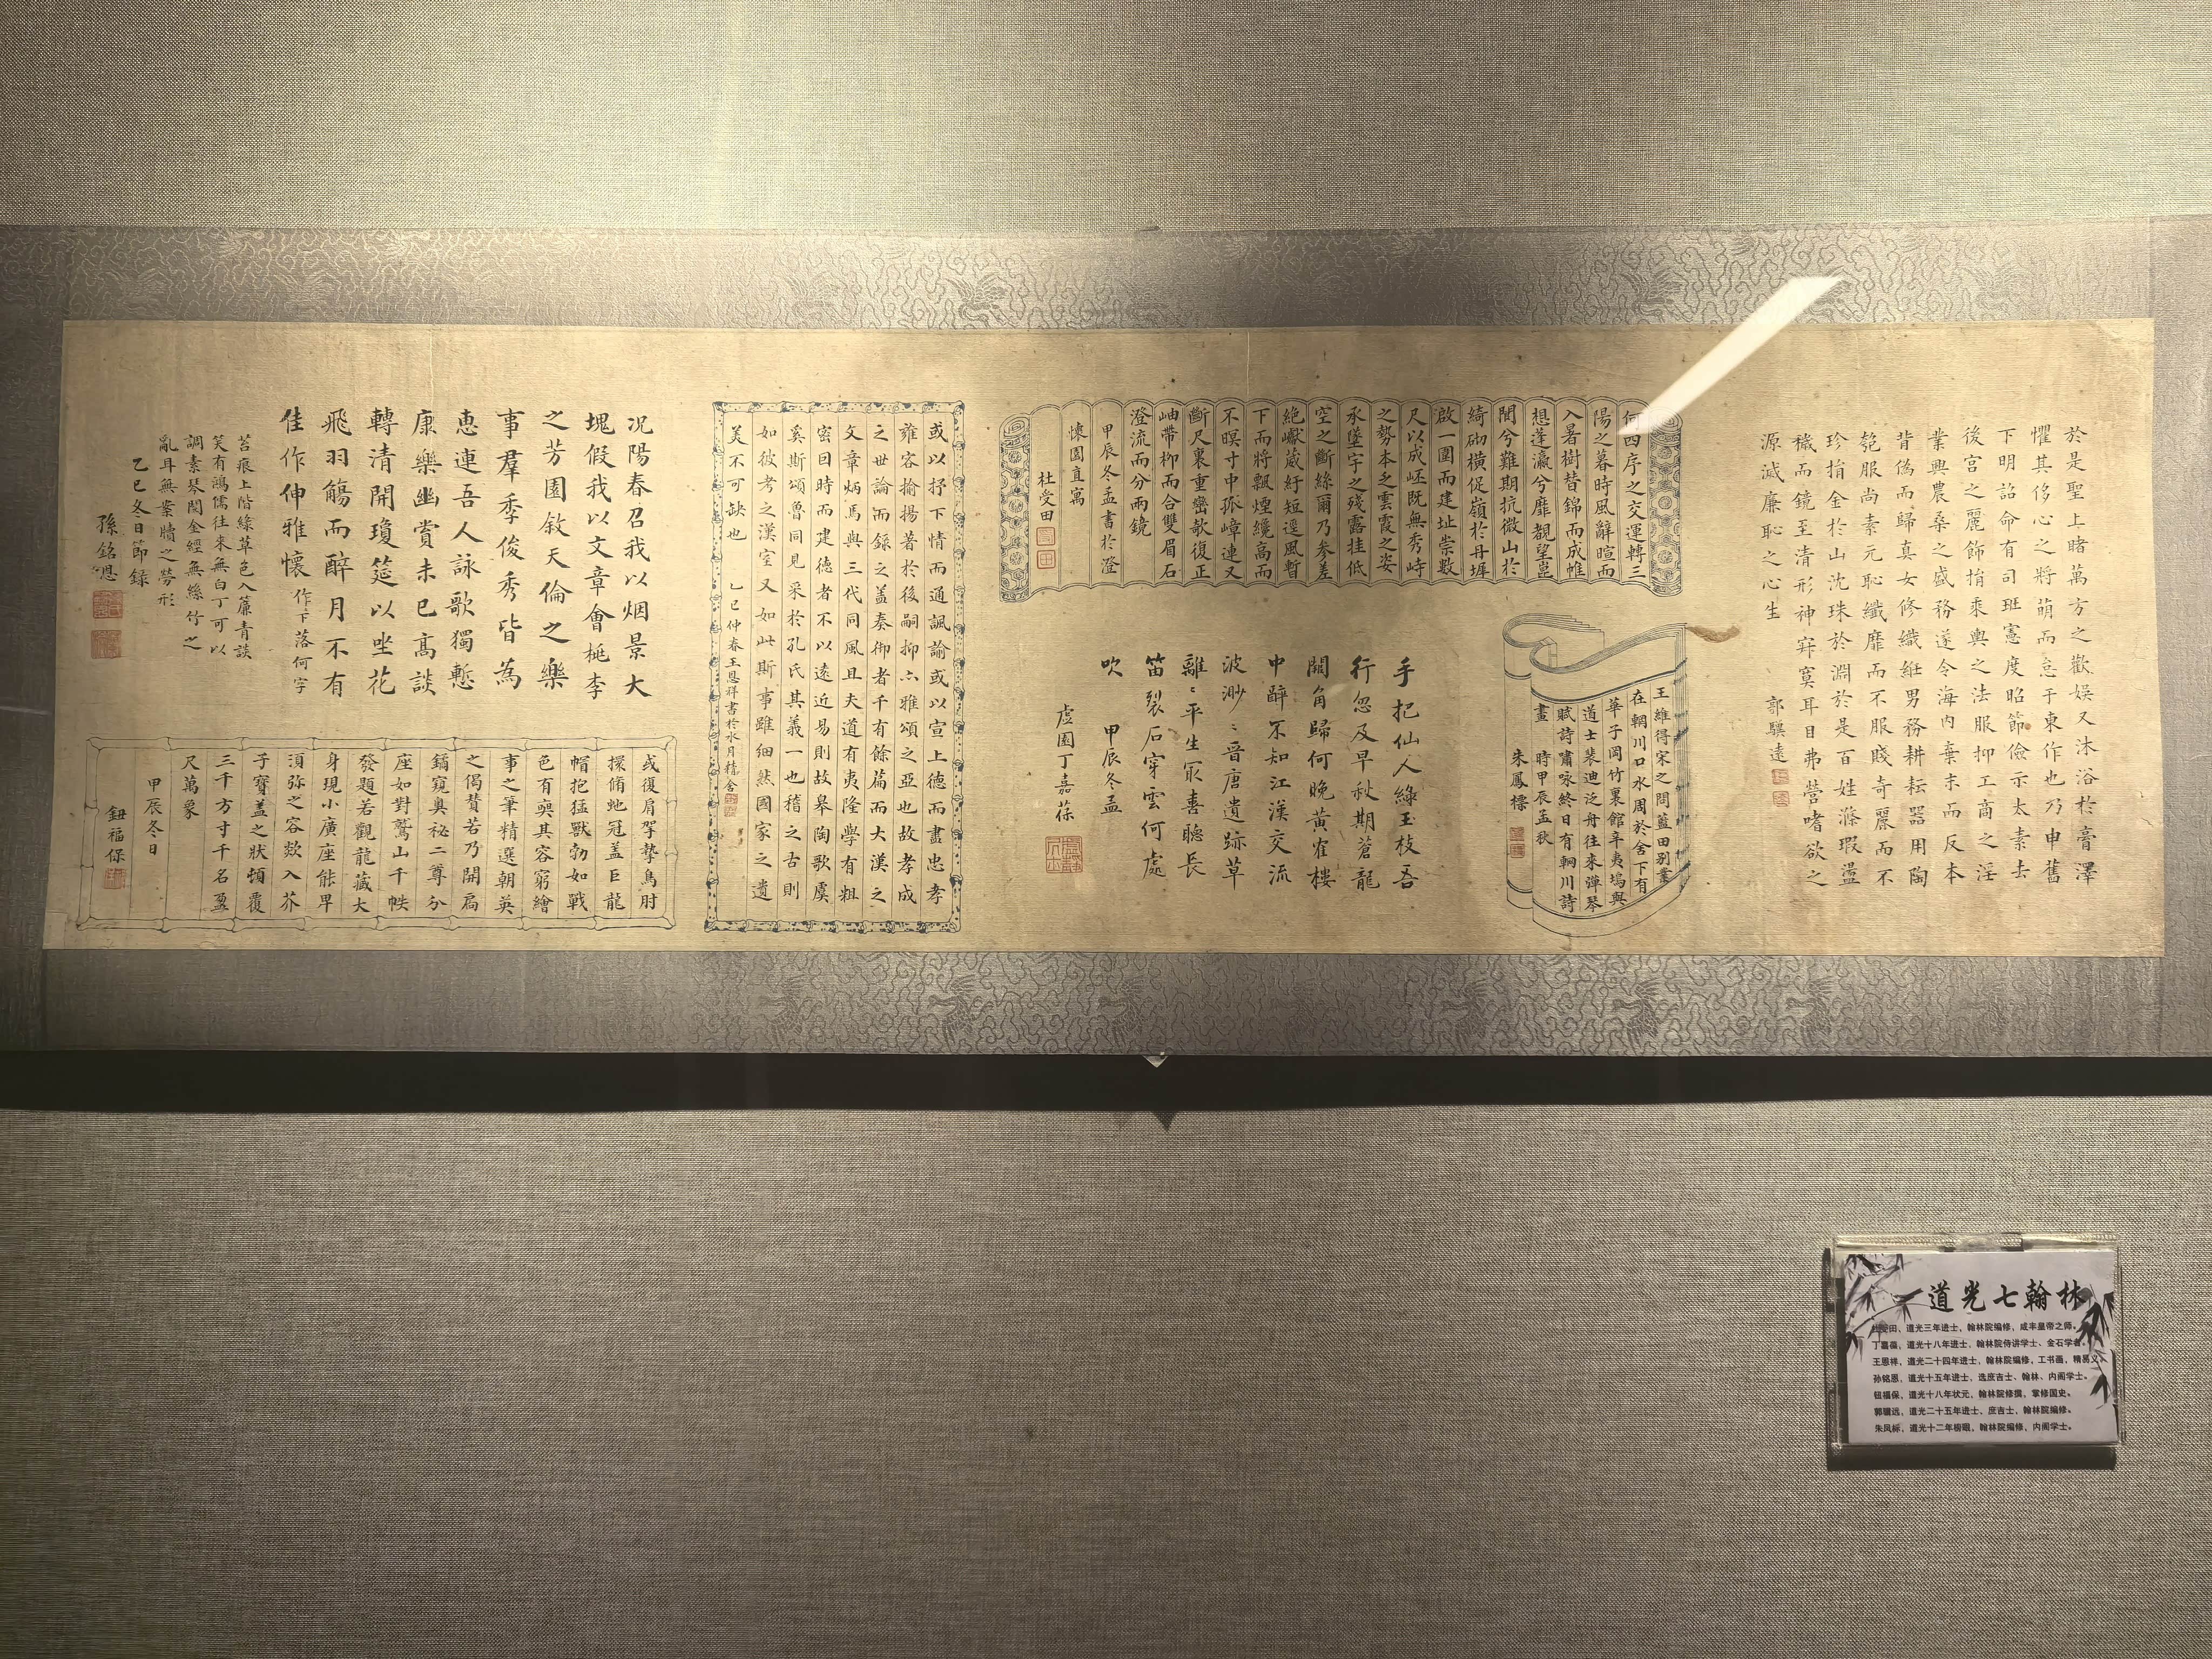 於是聖上睹萬方之歡娛又沐浴於膏澤
懼其侈心之將萌而怠于東作也乃申舊
下明詔命有司班憲度昭節儉示太素去
後宮之麗飾捐乘輿之法服抑工商之淫
業興農桑之盛務遂令海內棄末而反本
背偽而歸真女修織紝男務耕耘器用陶
匏服尚素元恥纖靡而不服賤奇麗而不
珍捐金於山沈珠於淵於是百姓滌瑕盪
穢而鏡至清形神寂寞耳目弗營嗜欲之
源滅廉恥之心生
郭驥遠
何四序之交運轉三
陽之暮時風辭暄而
入暑樹替錦而成帷
想蓬瀛兮靡觀望崑
閬兮難期抗微山於
綺砌橫促嶺於丹墀
啟一圍而建址崇數
尺以成坯既無秀峙
之勢本乏雲霞之姿
承墜宇之殘露挂低
空之斷絲爾乃參差
絕巘葳紆短逕風暫
下而將飄煙纔高而
不暝寸中孤嶂連又
斷尺裏重巒欹復正
岫帶柳而合雙眉石
澄流而分兩鏡
甲辰冬孟書於澄
懷園直寓
杜受田
王維得宋之問藍田別墅
在輞川口水周於舍下有
華子岡竹裏館辛夷塢與
道士裴迪泛舟往來彈琴
賦詩嘯咏終日有輞川詩
畫 時甲辰孟秋
朱鳳標
手把仙人綠玉枝吾
行忽及早秋期蒼龍
闕角歸何晚黃隺樓
中醉不知江漢交流
波渺〻晉唐遺跡草
離〻平生冣喜聽長
笛裂石穿雲何處
吹 甲辰冬孟
虛園丁嘉葆
或以抒下情而通諷諭或以宣上德而盡忠孝
雍容揄揚著於後嗣抑亦雅頌之亞也故孝成
之世論而錄之蓋奏御者千有餘篇而大漢之
文章炳焉與三代同風且夫道有夷隆學有粗
密因時而建德者不以遠近易則故皋陶歌虞
奚斯頌魯同見采於孔氏其義一也稽之古則
如彼考之漢室又如此斯事雖細然國家之遺
美不可缺也 乙巳仲春王恩祥書於水月精舍
況陽春召我以烟景大
塊假我以文章會桃李
之芳園敘天倫之樂
事羣季俊秀皆為
惠連吾人詠歌獨慙
康樂幽賞未已高談
轉清開瓊筵以坐花
飛羽觴而醉月不有
佳作伸雅懷 作下落何字
苔痕上階綠草色入簾青談
笑有鴻儒往來無白丁可以
調素琴閱金經無絲竹之
亂耳無案牘之勞形
乙巳冬日節錄
孫銘恩
或復肩挐摯鳥肘
擐脩虵冠蓋巨龍
帽抱猛獸勃如戰
色有奭其容窮繪
事之筆精選朝英
之偈贊若乃開扃
鐍窺奧祕二尊分
座如對鷲山千帙
發題若觀龍藏大
身現小廣座能卑
須弥之容欻入芥
子寶蓋之狀頓覆
三千方寸千名盈
尺萬象
甲辰冬日
鈕福保
道光七翰林
杜受田、道光三年进士、翰林院编修、咸丰皇帝之师。
丁嘉葆、道光十八年进士、翰林院侍讲学士、金石学者。
王恩祥、道光二十四年进士、翰林院编修、工书画，精易义。
孙铭恩、道光十五年进士、选庶吉士、翰林、内阁学士。
钮福保、道光十八年状元、翰林院修撰、掌修国史。
郭骥远、道光二十五年进士、庶吉士，翰林院编修。
朱凤标、道光十二年榜眼、翰林院编修、内阁学士。